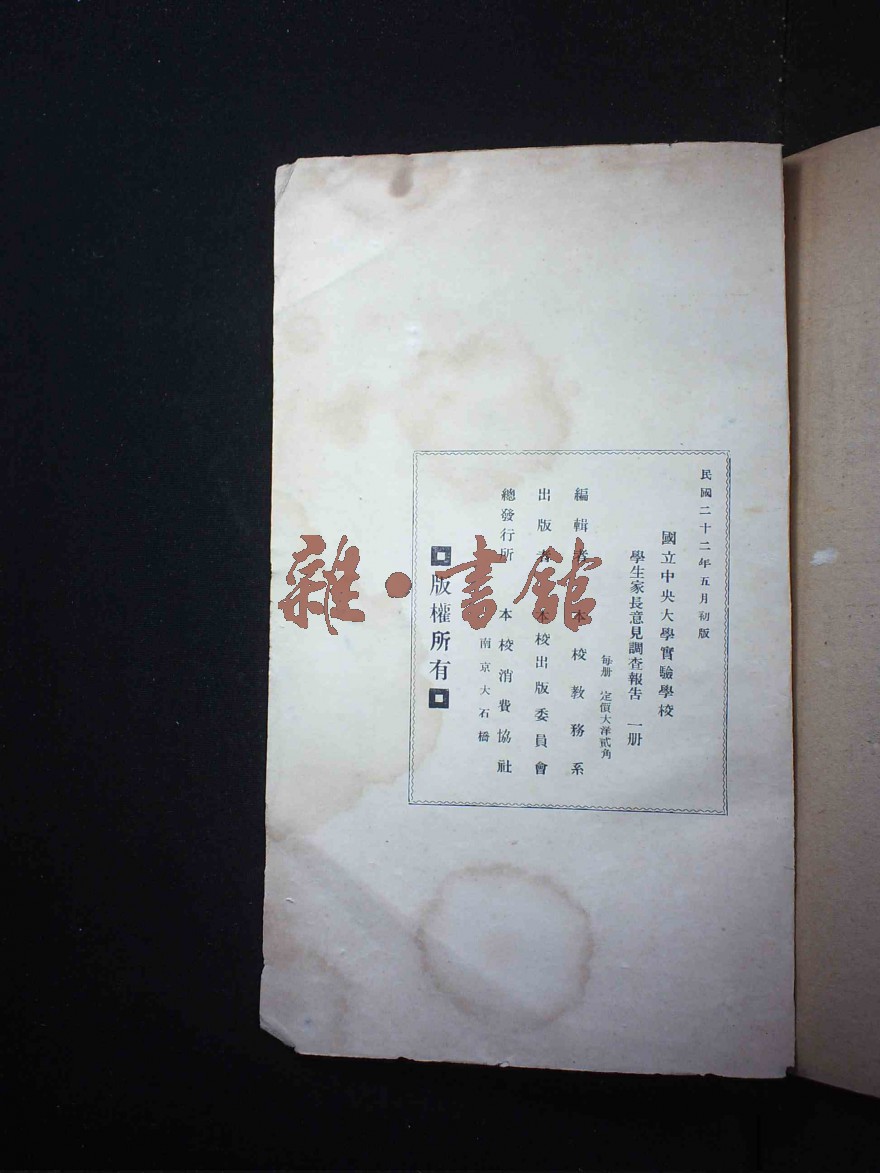 民國二十二年五月初版
國立中央大學實驗學校
學生家長意見調查報告 一册
每册 定價大洋貳角
編輯者 本校教務系
出版者 本校出版委員會
總發行所 本校消費協社
南京大石橋
版權所有
雜·書館